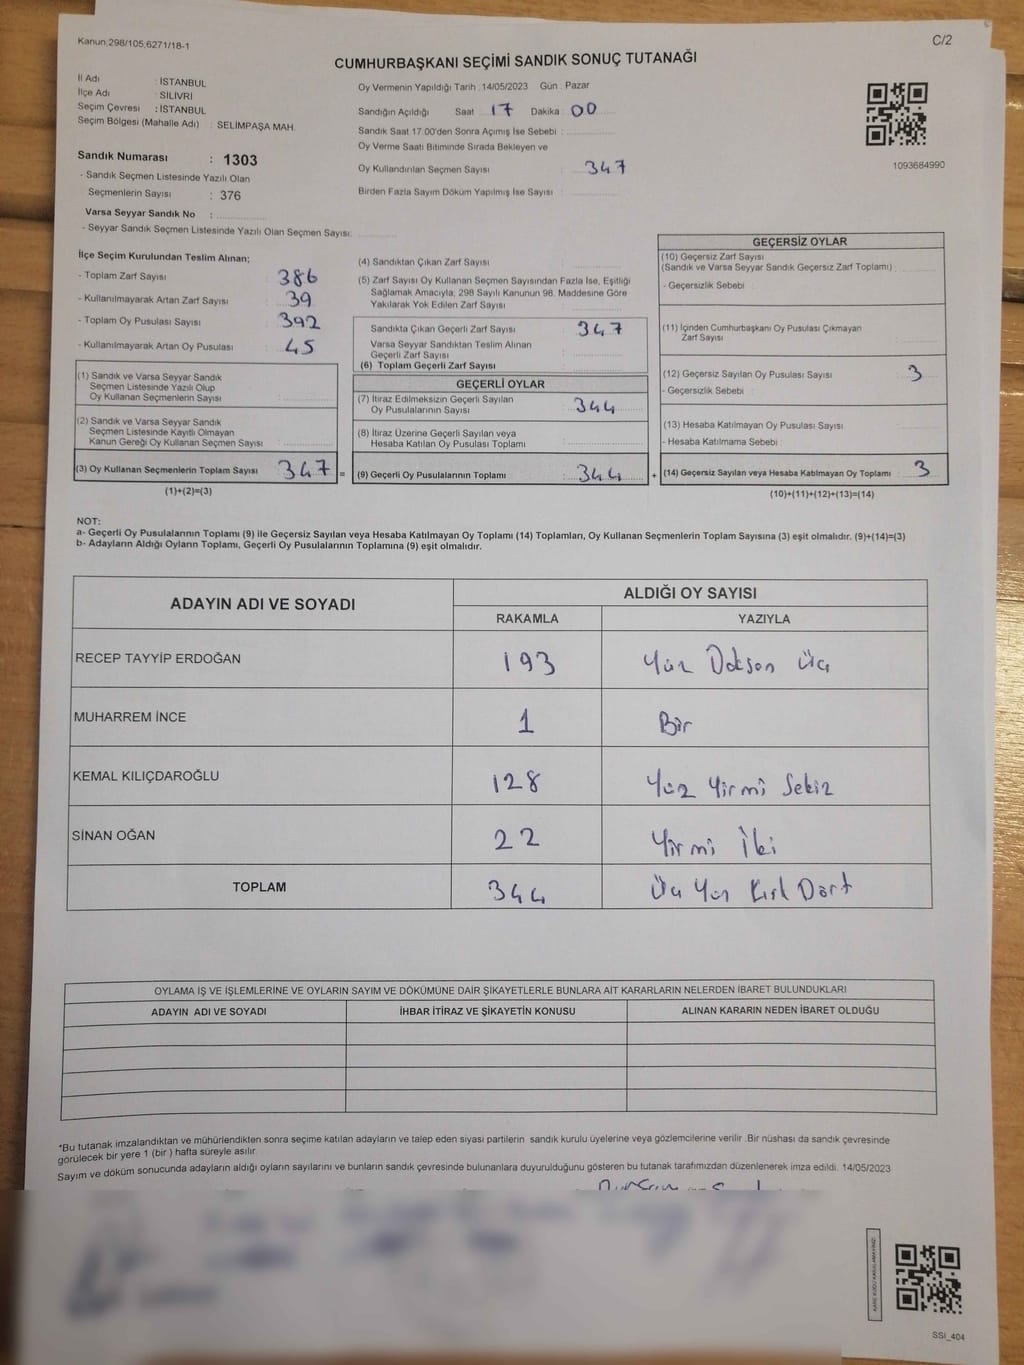 Kanun,298/105,6271/18-1
C/2
CUMHURBAŞKANI SEÇİMİ SANDIK SONUÇ TUTANAĞI
İl Adı : İSTANBUL
İlçe Adı : SİLİVRİ
Seçim Çevresi : İSTANBUL
Seçim Bölgesi (Mahalle Adı) : SELİMPAŞA MAH.
Sandık Numarası : 1303
- Sandık Seçmen Listesinde Yazılı Olan
Seçmenlerin Sayısı : 376
Varsa Seyyar Sandık No :
- Seyyar Sandık Seçmen Listesinde Yazılı Olan Seçmen Sayısı:
Oy Vermenin Yapıldığı Tarih : 14/05/2023 Gün : Pazar
Sandığın Açıldığı Saat : 17 Dakika : 00
Sandık Saat 17.00'den Sonra Açımış İse Sebebi :
Oy Verme Saati Bitiminde Sırada Bekleyen ve
Oy Kullandırılan Seçmen Sayısı : 347
Birden Fazla Sayım Döküm Yapılmış İse Sayısı :
1093684990
İlçe Seçim Kurulundan Teslim Alınan;
- Toplam Zarf Sayısı : 386
- Kullanılmayarak Artan Zarf Sayısı : 39
- Toplam Oy Pusulası Sayısı : 392
- Kullanılmayarak Artan Oy Pusulası : 45
(1) Sandık ve Varsa Seyyar Sandık
Seçmen Listesinde Yazılı Olup
Oy Kullanan Seçmenlerin Sayısı :
(2) Sandık ve Varsa Seyyar Sandık
Seçmen Listesinde Kayıtlı Olmayan
Kanun Gereği Oy Kullanan Seçmen Sayısı :
(3) Oy Kullanan Seçmenlerin Toplam Sayısı : 347 =
(1)+(2)=(3)
(4) Sandıktan Çıkan Zarf Sayısı :
(5) Zarf Sayısı Oy Kullanan Seçmen Sayısından Fazla İse, Eşitliği
Sağlamak Amacıyla, 298 Sayılı Kanunun 98. Maddesine Göre
Yakılarak Yok Edilen Zarf Sayısı :
Sandıkta Çıkan Geçerli Zarf Sayısı : 347
Varsa Seyyar Sandıktan Teslim Alınan
Geçerli Zarf Sayısı :
(6) Toplam Geçerli Zarf Sayısı :
GEÇERLİ OYLAR
(7) İtiraz Edilmeksizin Geçerli Sayılan
Oy Pusulalarının Sayısı : 344
(8) İtiraz Üzerine Geçerli Sayılan veya
Hesaba Katılan Oy Pusulası Toplamı :
(9) Geçerli Oy Pusulalarının Toplamı : 344 +
GEÇERSİZ OYLAR
(10) Geçersiz Zarf Sayısı
(Sandık ve Varsa Seyyar Sandık Geçersiz Zarf Toplamı) :
- Geçersizlik Sebebi :
(11) İçinden Cumhurbaşkanı Oy Pusulası Çıkmayan
Zarf Sayısı :
(12) Geçersiz Sayılan Oy Pusulası Sayısı : 3
- Geçersizlik Sebebi :
(13) Hesaba Katılmayan Oy Pusulası Sayısı :
- Hesaba Katılmama Sebebi :
(14) Geçersiz Sayılan veya Hesaba Katılmayan Oy Toplamı : 3
(10)+(11)+(12)+(13)=(14)
NOT:
a- Geçerli Oy Pusulalarının Toplamı (9) ile Geçersiz Sayılan veya Hesaba Katılmayan Oy Toplamı (14) Toplamları, Oy Kullanan Seçmenlerin Toplam Sayısına (3) eşit olmalıdır. (9)+(14)=(3)
b- Adayların Aldığı Oyların Toplamı, Geçerli Oy Pusulalarının Toplamına (9) eşit olmalıdır.
ADAYIN ADI VE SOYADI
ALDIĞI OY SAYISI
RAKAMLA YAZIYLA
RECEP TAYYİP ERDOĞAN 193 Yüz Doksan Üç
MUHARREM İNCE 1 Bir
KEMAL KILIÇDAROĞLU 128 Yüz Yirmi Sekiz
SİNAN OĞAN 22 Yirmi İki
TOPLAM 344 Üç Yüz Kırk Dört
OYLAMA İŞ VE İŞLEMLERİNE VE OYLARIN SAYIM VE DÖKÜMÜNE DAİR ŞİKAYETLERLE BUNLARA AİT KARARLARIN NELERDEN İBARET BULUNDUKLARI
ADAYIN ADI VE SOYADI İHBAR İTİRAZ VE ŞİKAYETİN KONUSU ALINAN KARARIN NEDEN İBARET OLDUĞU
*Bu tutanak imzalandıktan ve mühürlendikten sonra seçime katılan adayların ve talep eden siyasi partilerin sandık kurulu üyelerine veya gözlemcilerine verilir. Bir nüshası da sandık çevresinde
görülecek bir yere 1 (bir ) hafta süreyle asılır.
Sayım ve döküm sonucunda adayların aldığı oyların sayılarını ve bunların sandık çevresinde bulunanlara duyurulduğunu gösteren bu tutanak tarafımızdan düzenlenerek imza edildi. 14/05/2023
SSİ_404